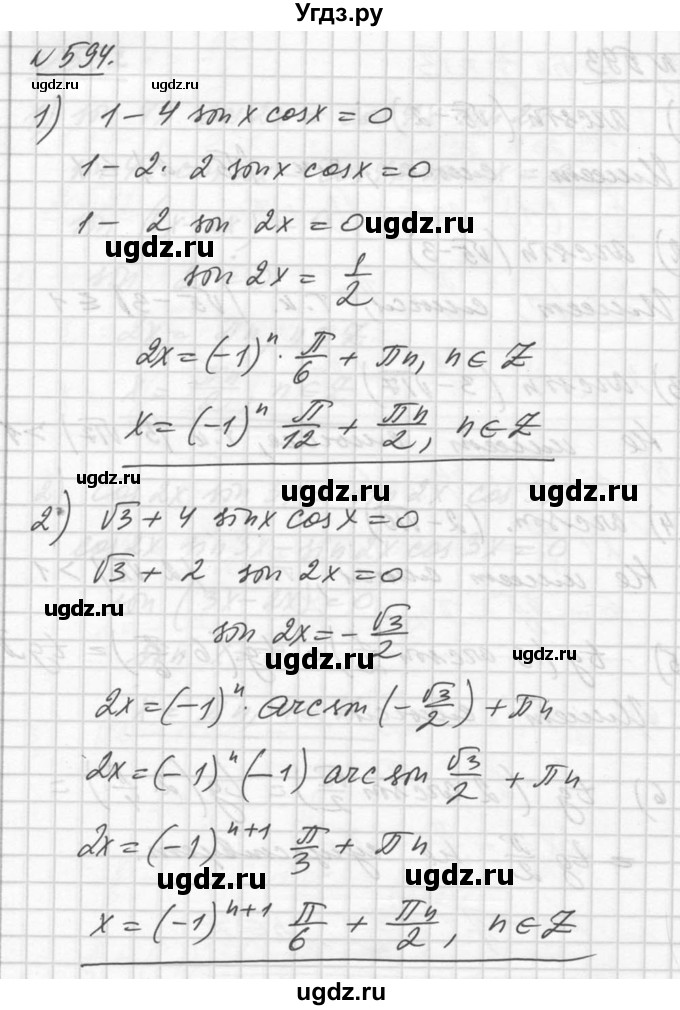 Угдз.ру
№594.
ugdz.ru ugdz.ru ugdz.ru
1) 1 - 4 sin x cos x = 0
1 - 2 · 2 sin x cos x = 0
1 - 2 sin 2x = 0
ugdz.ru
ugdz.ru
sin 2x = 1/2
2x = (-1)^n · π/6 + πn, n ∈ Z
ugdz.ru ugdz.ru
x = (-1)^n π/12 + πn/2, n ∈ Z
ugdz.ru ugdz.ru
2) √3 + 4 sin x cos x = 0
√3 + 2 sin 2x = 0
ugdz.ru
sin 2x = - √3/2
ugdz.ru ugdz.ru
2x = (-1)^n · arcsin (- √3/2) + πn
2x = (-1)^n (-1) arcsin √3/2 + πn
ugdz.ru ugdz.ru
2x = (-1)^{n+1} π/3 + πn
ugdz.ru ugdz.ru
x = (-1)^{n+1} π/6 + πn/2, n ∈ Z
ugdz.ru